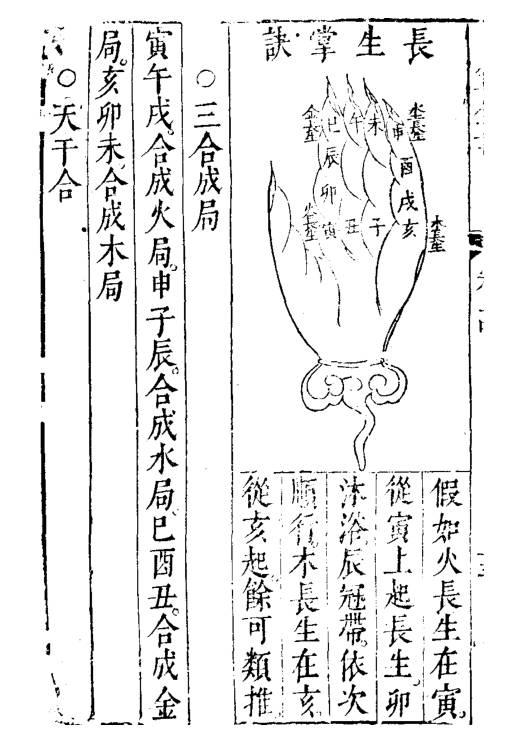 長生掌訣
水長生
金長生
巳
午
未
申
辰
酉
卯
戌
寅
丑
子
亥
火長生
木長生
假如火長生在寅。
從寅上起長生。卯
沐浴。辰冠帶。依次
順行。木長生在亥。
從亥起。餘可類推。
○三合成局
寅午戌。合成火局。申子辰。合成水局。巳酉丑。合成金
局。亥卯未。合成木局
○天干合